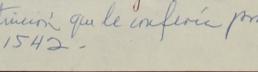 que le confería por
1542.-